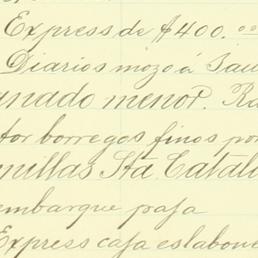 Express de $400.00
Diarios mozo á Sau
anado menor. Ra
tor borregos finos por
millas Sta Catal
embarque paja
Express caja eslabone